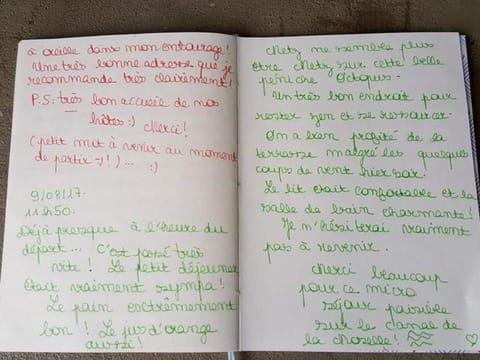 à oreille dans mon entourage !
Une très bonne adresse que je
recommande très clairement !
P.S: très bon accueil de nos
hôtes :) Merci !
(petit mot à venir au moment
de partir =) ! ) ... :)
9/08/17.
11h50.
Déjà presque à l'heure du
départ ... C'est passé très
vite ! Le petit déjeuner
était vraiment sympa !
Le pain extrêmement
bon ! Le jus d'orange
aussi !
Metz ne semble plus
être Metz sur cette belle
péniche Octopus.
Un très bon endroit pour
rester zen et se ressourcer.
On a bien profité de la
terrasse malgré les quelques
coups de vent hier soir.
Le lit était confortable et la
salle de bain charmante !
Je n'hésiterai vraiment
pas à revenir.
Merci beaucoup
pour ce micro
séjour paisible
sur le canal de
la Moselle !